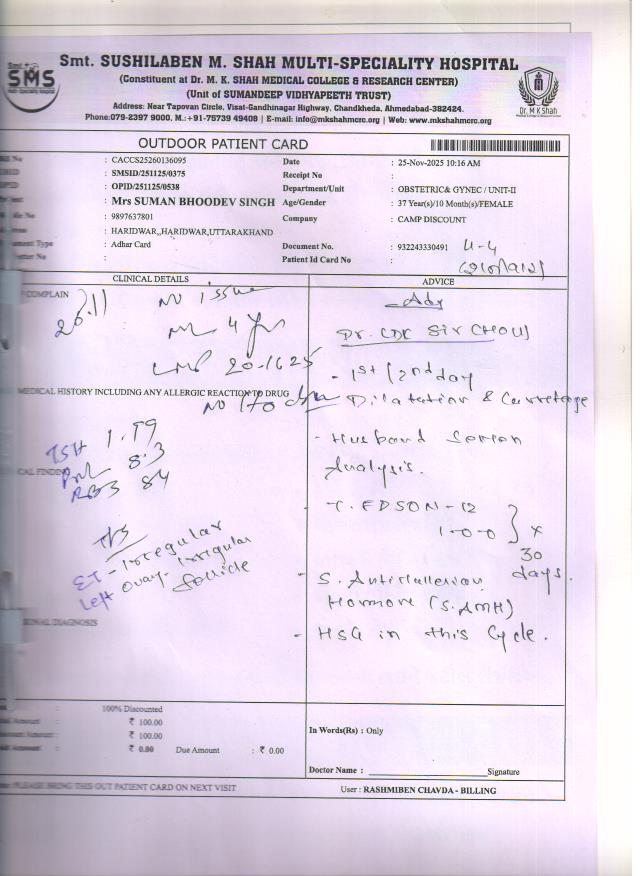 Smt. SUSHILABEN M. SHAH MULTI-SPECIALITY HOSPITAL
(Constituent at Dr. M. K. SHAH MEDICAL COLLEGE & RESEARCH CENTER)
(Unit of SUMANDEEP VIDHYAPEETH TRUST)
Address: Near Tapovan Circle, Visat-Gandhinagar Highway, Chandkheda, Ahmedabad-382424.
Phone:079-2397 9000, M.:+91-75739 49408 | E-mail: info@mkshahmcrc.org | Web: www.mkshahmcrc.org
SMS
Dr. M K Shah
OUTDOOR PATIENT CARD
: CACCS25260136095 Date : 25-Nov-2025 10:16 AM
: SMSID/251125/0375 Receipt No :
OPID : OPID/251125/0538 Department/Unit : OBSTETRIC& GYNEC / UNIT-II
: Mrs SUMAN BHOODEV SINGH Age/Gender : 37 Year(s)/10 Month(s)/FEMALE
: 9897637801 Company : CAMP DISCOUNT
: HARIDWAR,,HARIDWAR,UTTARAKHAND
Type : Adhar Card Document No. : 932243330491
: Patient Id Card No :
CLINICAL DETAILS ADVICE
COMPLAIN
No issue
4 yrs
LMP
MEDICAL HISTORY INCLUDING ANY ALLERGIC REACTION TO DRUG
No
TSH 1.
PRL 8.3
RBS 84
TVS
ET - Irregular
Left ovary - irregular
follicle
- Adv
Dr. CDK Sir
- 1st / 2nd day
Dilatation & Curretage
- Husband Semen
Analysis.
- T. EDSON-12
1-0-0 } x
30
days.
- S. Antimullerian
Hormone (S.AMH)
- HSG in this Cycle.
DIAGNOSIS
: 100% Discounted
Amount : ₹ 100.00
Amount : ₹ 100.00
Amount : ₹ 0.00 Due Amount : ₹ 0.00
In Words(Rs) : Only
Doctor Name : Signature
PLEASE BRING THIS OUT PATIENT CARD ON NEXT VISIT
User : RASHMIBEN CHAVDA - BILLING